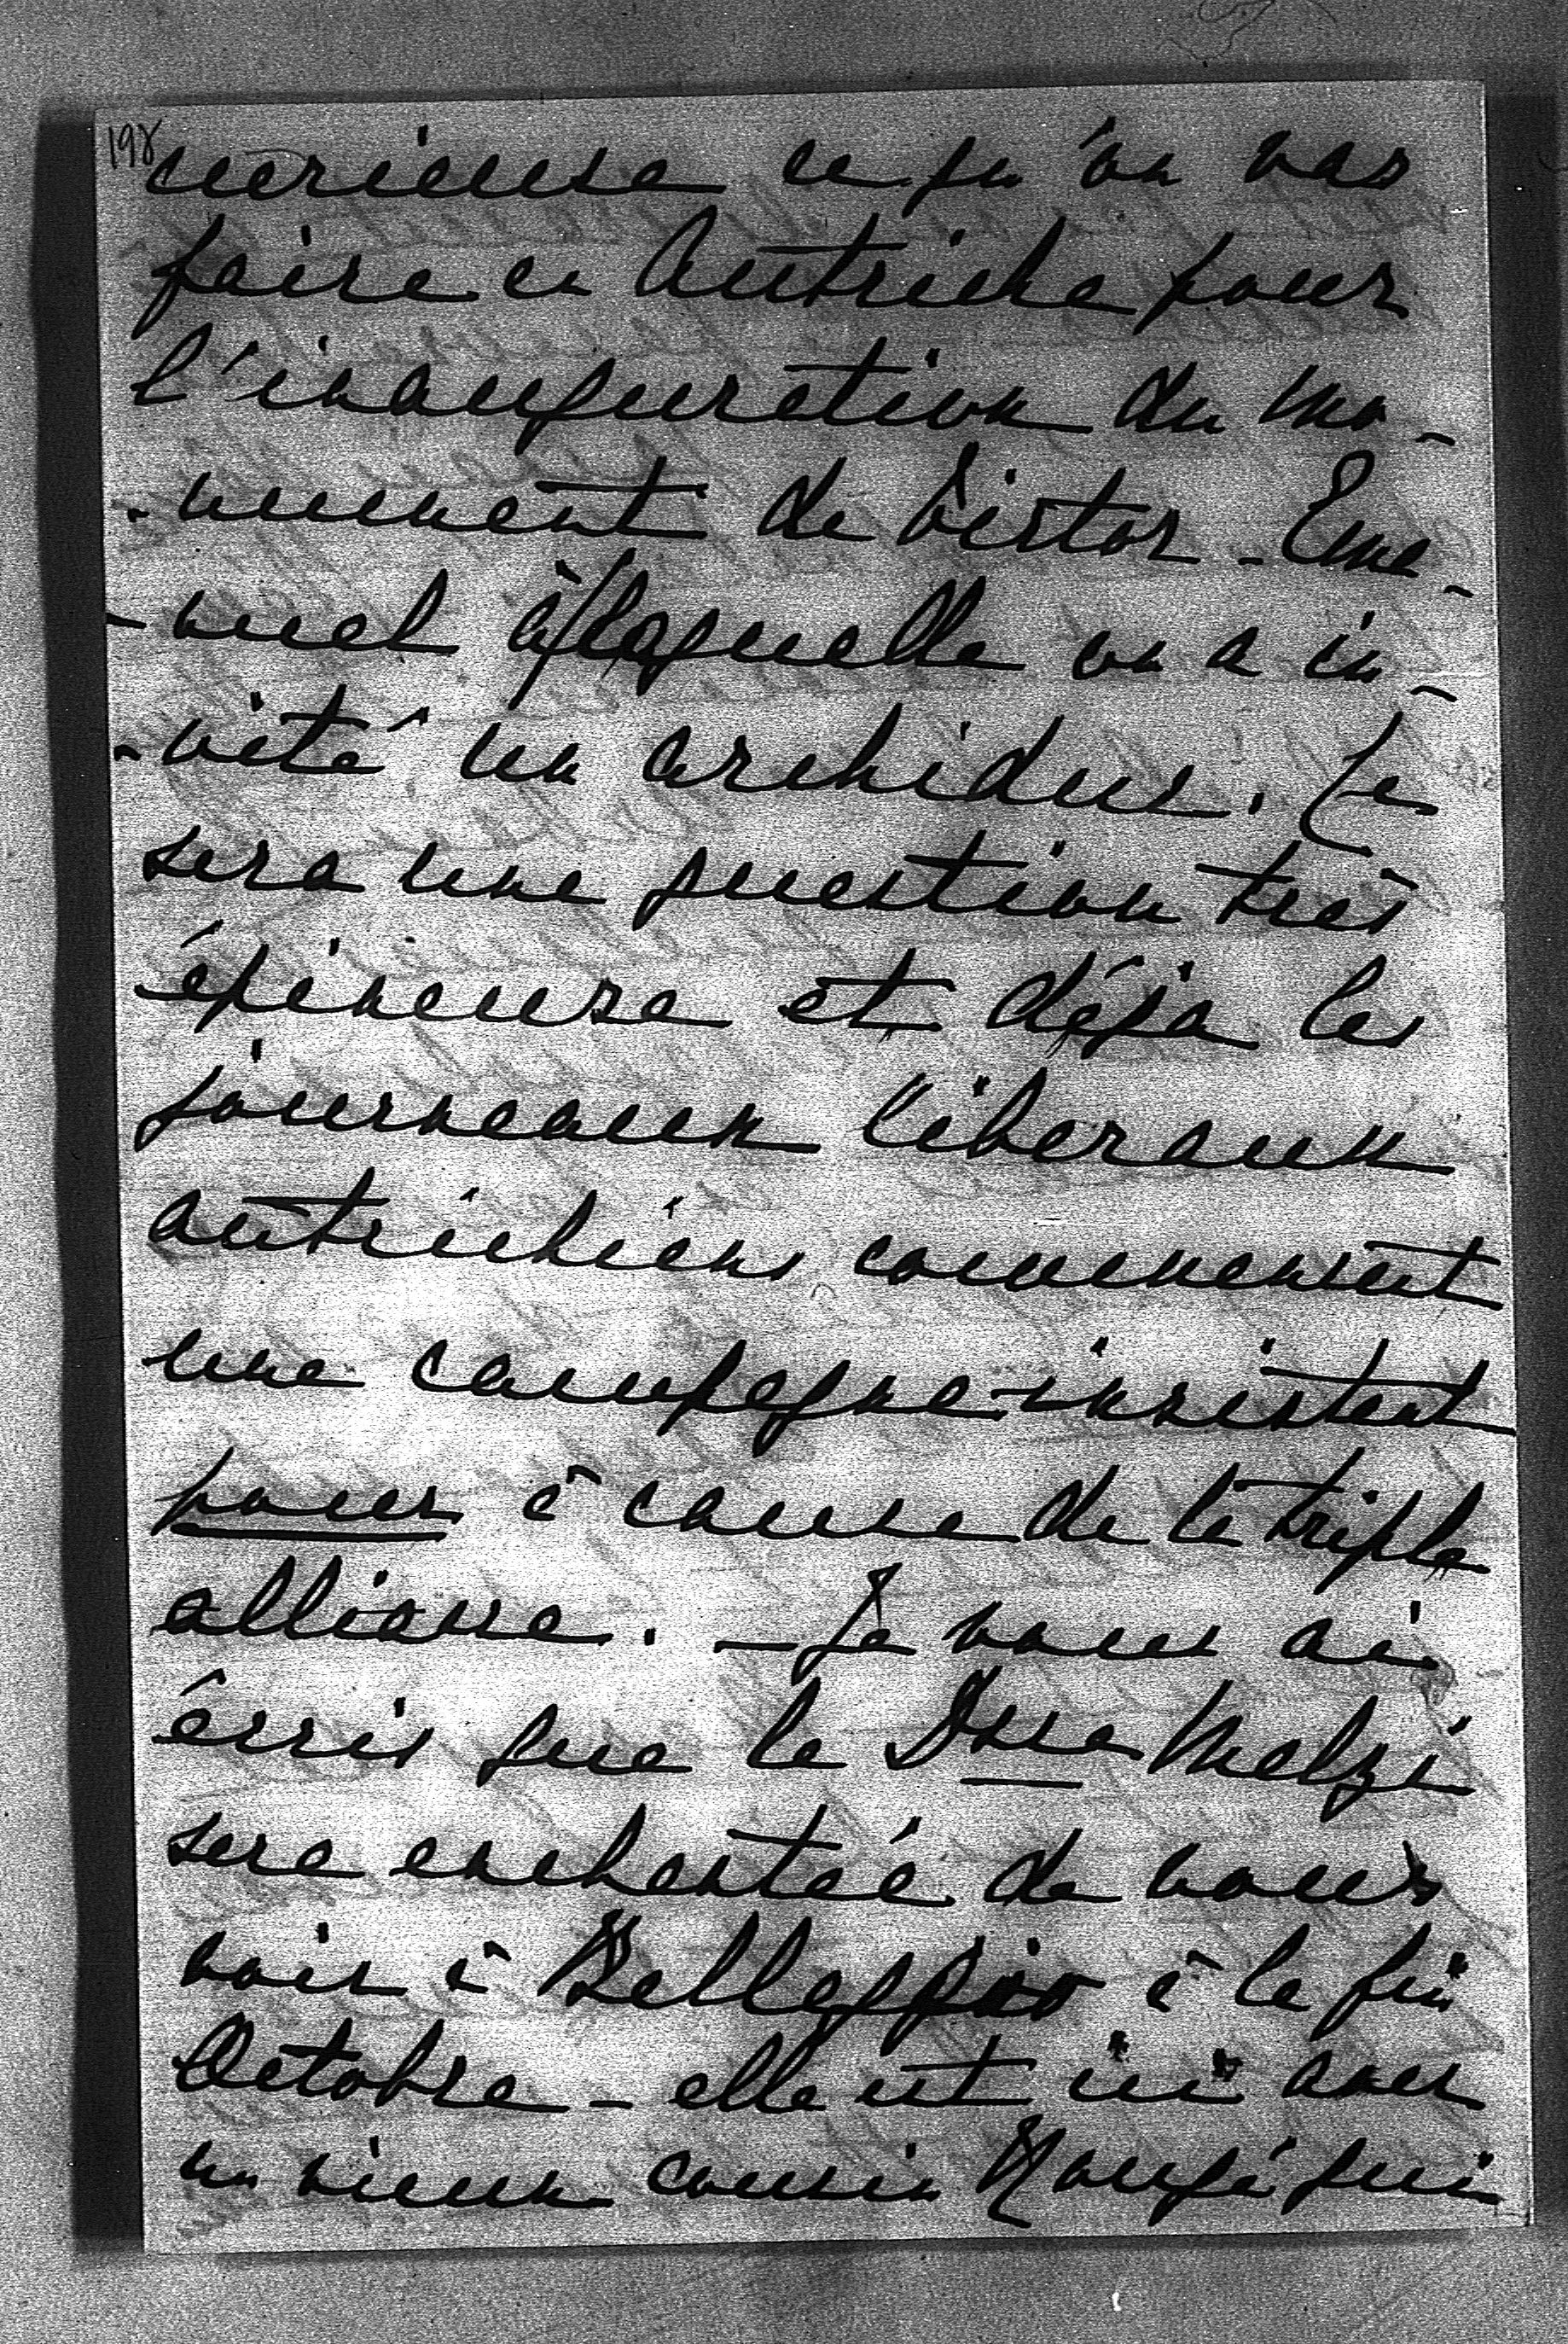 198
curieuse ce qu'on vas
faire en Autriche pour
l'inauguration du mo-
-nument de Victor-Ema-
-nuel à laquelle on a in-
-vité un archiduc. Ce
sera une question très
épineuse et déja les
journeaux liberaux
autrichiens commencent
une campagne insistent
pour à cause de la triple
alliance. - Je vous ai
écris que la Dssa Melzi
sera enchantée de vous
voir à Bellaggio à la fin
Octobre - elle est ici avec
un vieux cousin qui